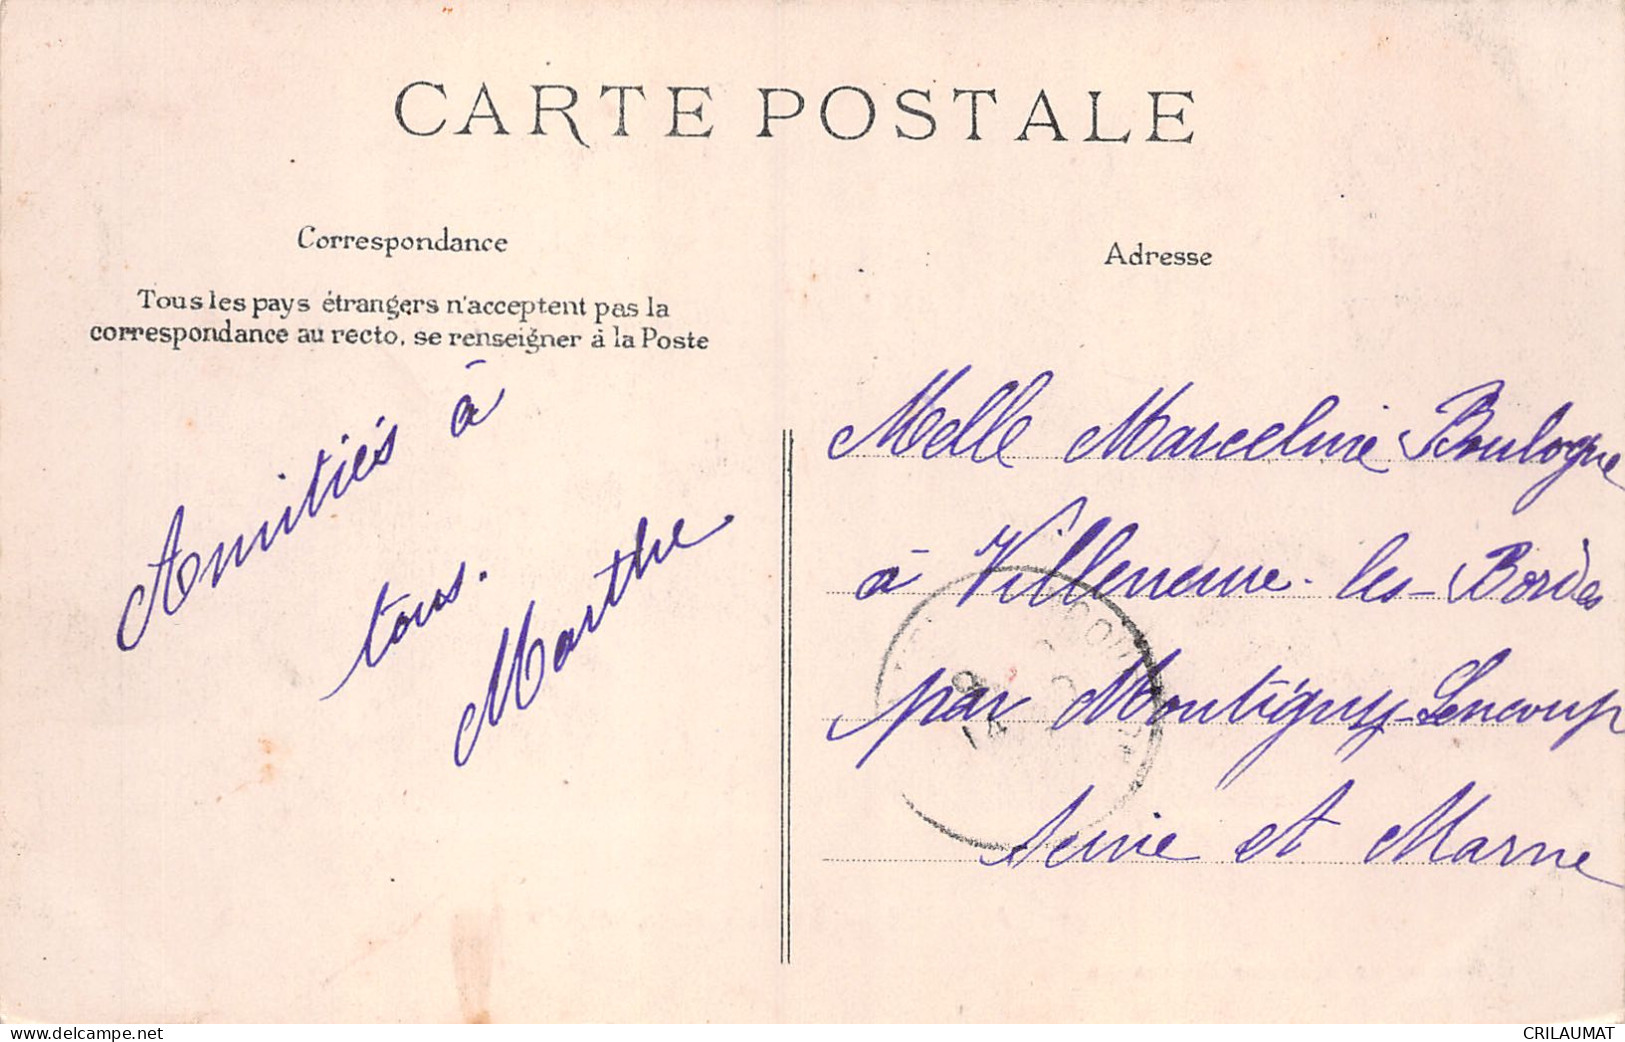 CARTE POSTALE
Correspondance
Tous les pays étrangers n'acceptent pas la
correspondance au recto, se renseigner à la Poste
Amitiés à
tous.
Marthe
Adresse
Melle Marceline Boulogne
à Villeneuve-les-Bordes
par Montigny-Lencoup
Seine et Marne
www.delcampe.net
CRILAUMAT